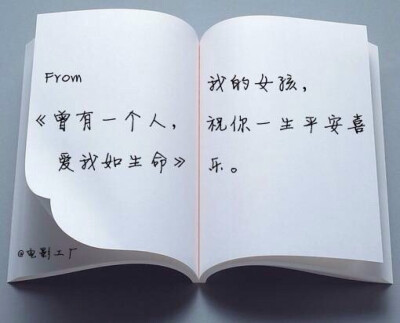 From
《曾有一个人，
爱我如生命》
@电影工厂
我的女孩，
祝你一生平安喜
乐。